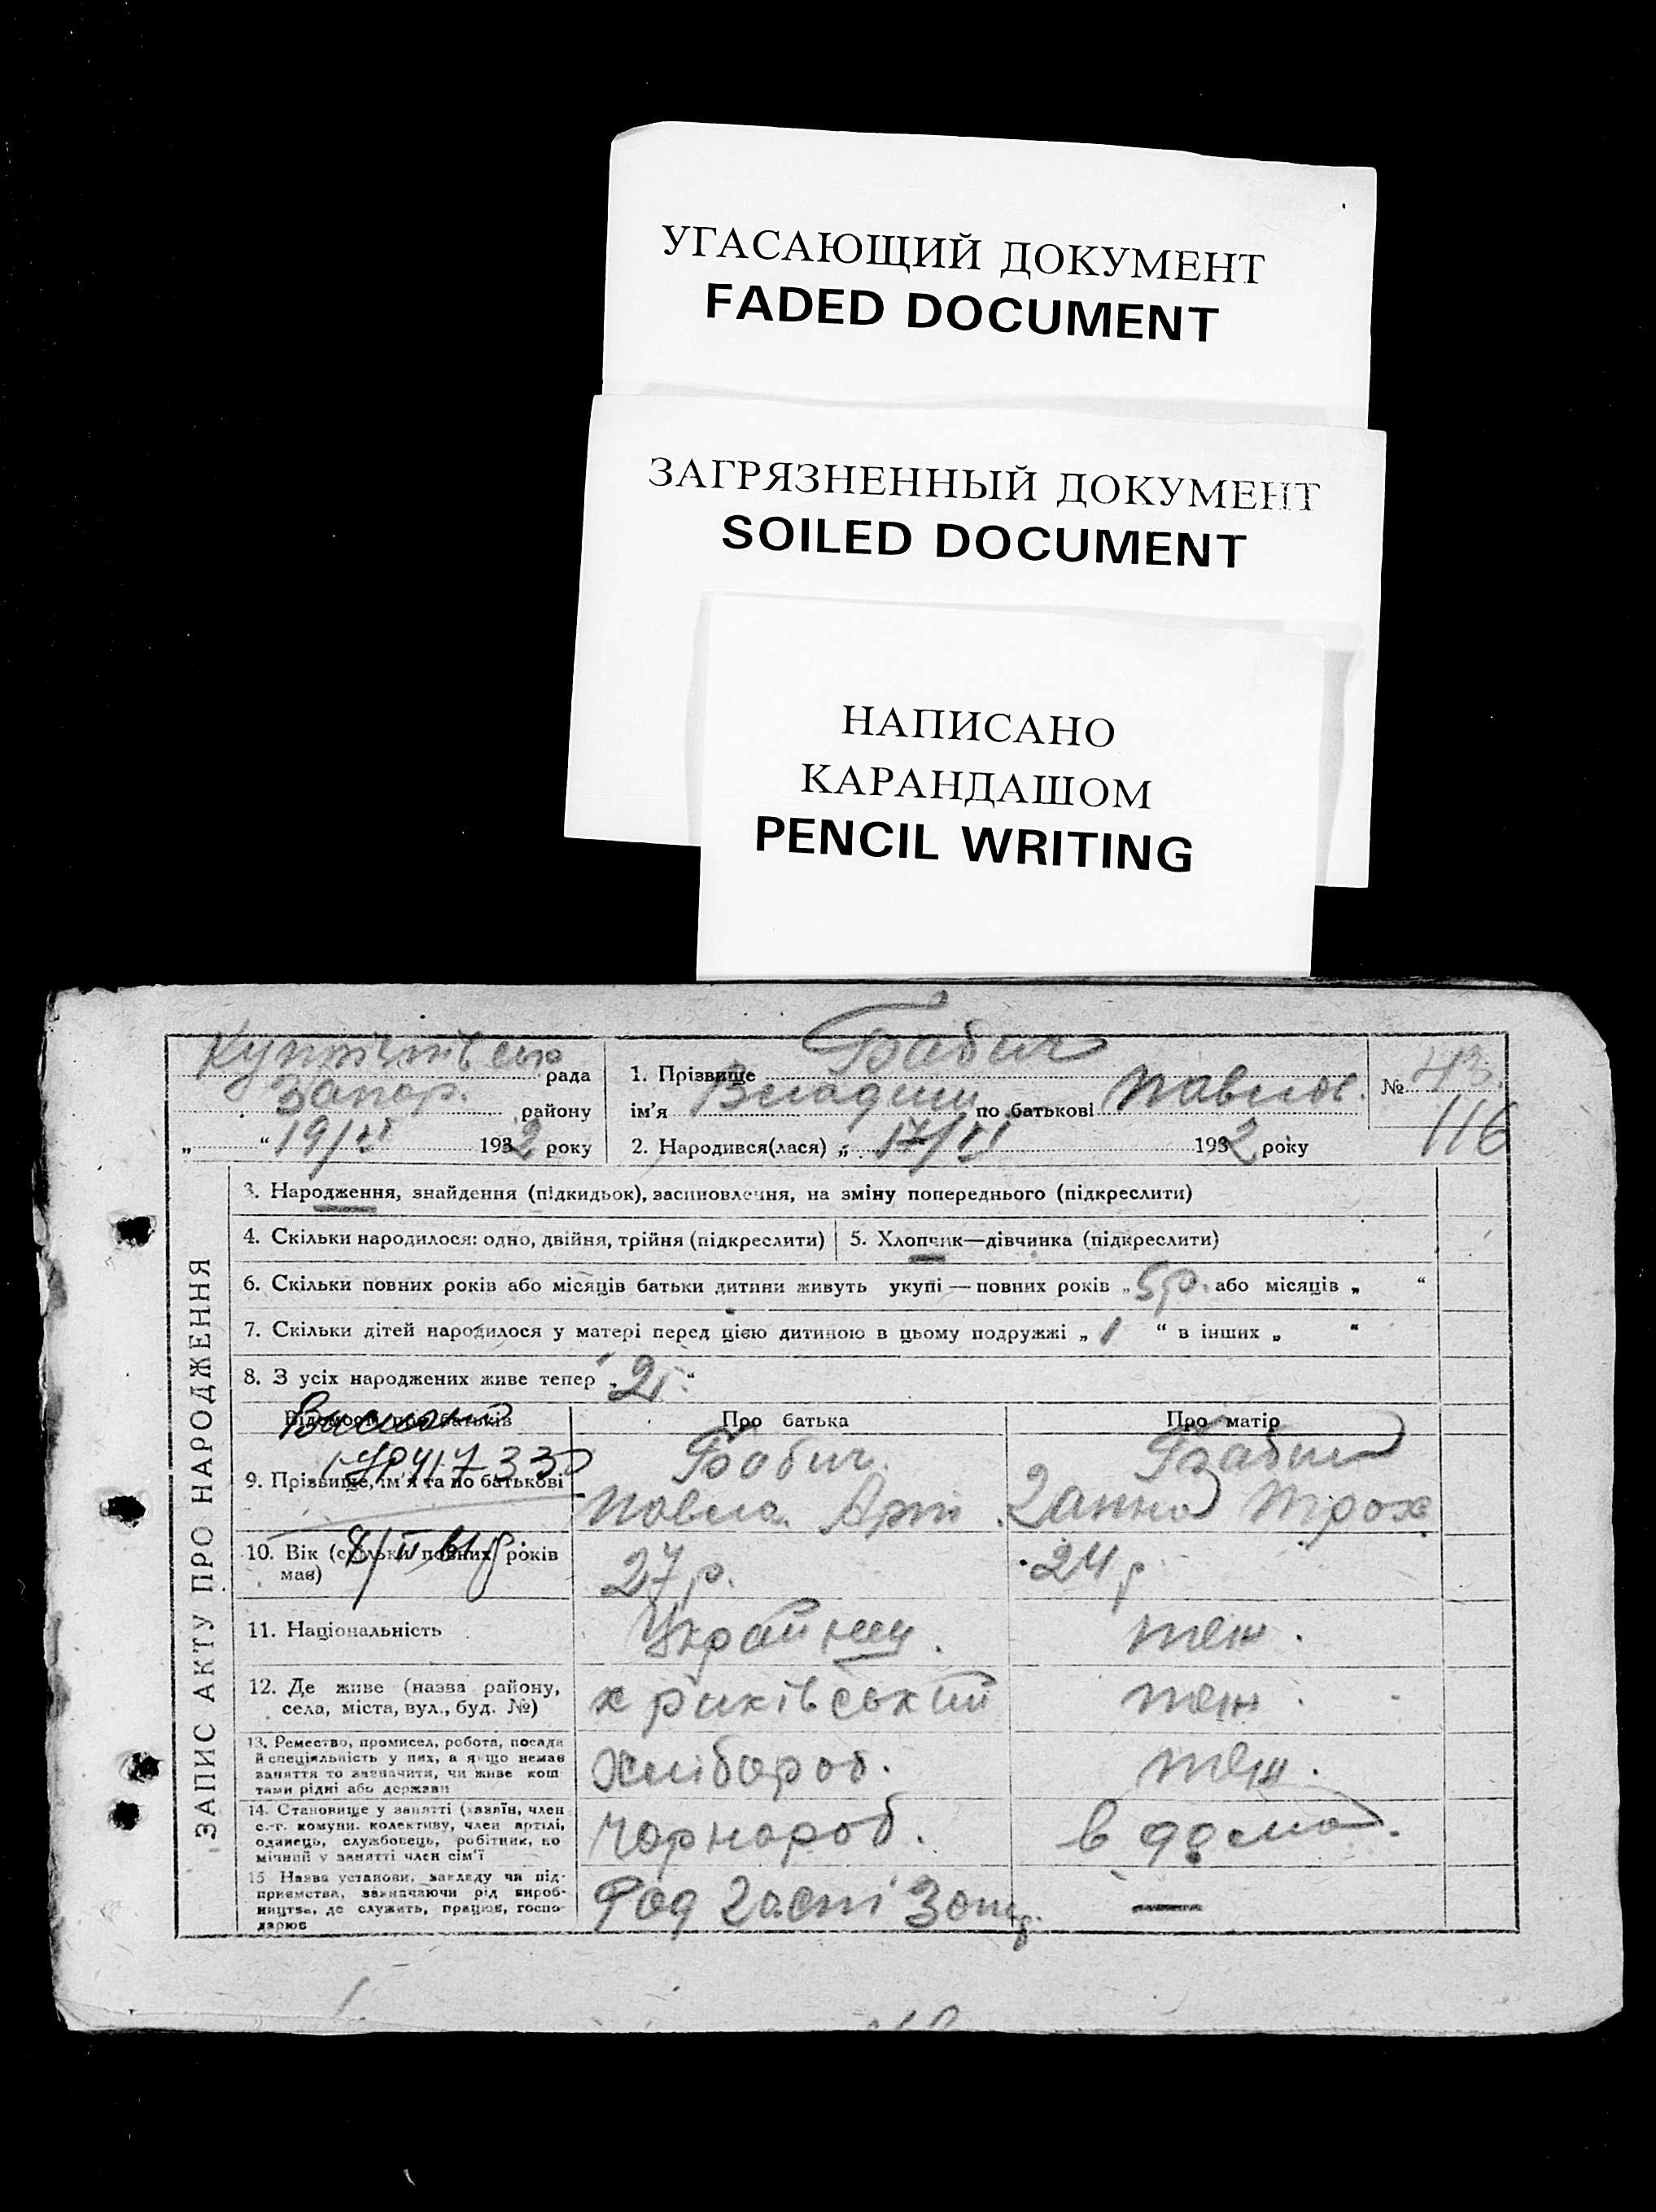 УГАСАЮЩИЙ ДОКУМЕНТ
FADED DOCUMENT
ЗАГРЯЗНЕННЫЙ ДОКУМЕНТ
SOILED DOCUMENT
НАПИСАНО
КАРАНДАШОМ
PENCIL WRITING
рада
Запор. району
„ “ 19/VI 1932 року
Бабич
1. Прізвище
ім'я по батькові Павлов.
2. Народився(лася) „ 17/VI 1932 року
№ 43.
116
ЗАПИС АКТУ ПРО НАРОДЖЕННЯ
3. Народження, знайдення (підкидьок), засиновлення, на зміну попереднього (підкреслити)
4. Скільки народилося: одно, двійня, трійня (підкреслити)
5. Хлопчик—дівчинка (підкреслити)
6. Скільки повних років або місяців батьки дитини живуть укупі — повних років „ 5 р. або місяців „ “
7. Скільки дітей народилося у матері перед цією дитиною в цьому подружжі „ 1 “ в інших „ “
8. З усіх народжених живе тепер „ 2 “
Відомості про батьків
Про батька
Про матір
9. Прізвище, ім'я та по батькові
Бабич.
Павло Арт
Бабич
Ганна Трох
10. Вік (скільки повних років
має)
27 р.
24 р
11. Національність
Українц.
теж.
12. Де живе (назва району,
села, міста, вул., буд. №)
х риківський
теж.
13. Ремество, промисел, робота, посада
й спеціяльність у них, а якщо немає
заняття то зазначити, чи живе кош
тами рідні або держави
хлібороб.
теж.
14. Становище у занятті (хазяїн, член
с.-г. комуни. колективу, член артілі,
одинець, службовець, робітник, по
мічний у занятті член сім'ї
чорнороб.
в дома.
15 Назва установи, закладу чи під-
приємства, зазначаючи рід вироб-
ництва, де служить, працює, госпо-
дарює
—